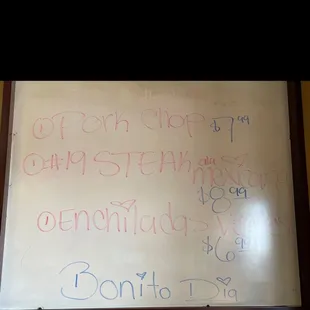 ① Pork Chop $7.99
① #19 STEAK a la
mexican
$8.99
① Enchiladas
$6.99
Bonito Dia